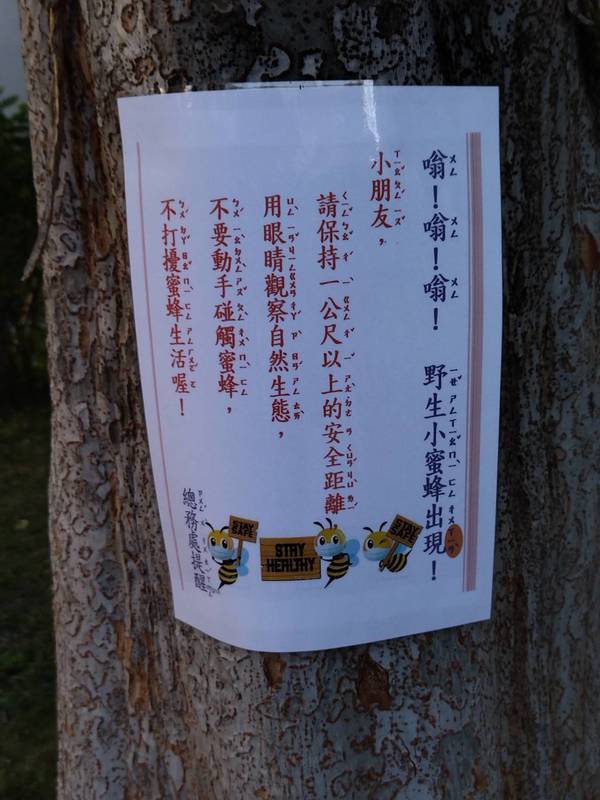 嗡！嗡！嗡！ 野生小蜜蜂出現！
小朋友，
請保持一公尺以上的安全距離
用眼睛觀察自然生態，
不要動手碰觸蜜蜂，
不打擾蜜蜂生活喔！
總務處提醒
STAY SAFE
STAY HEALTHY
STAY SAFE